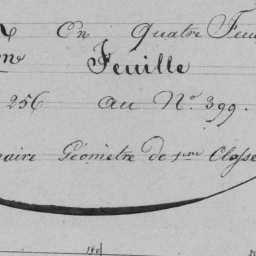 En Quatre Feu
Feuille
256 au N.° 399.
naire Géomètre de 1.ere Classe